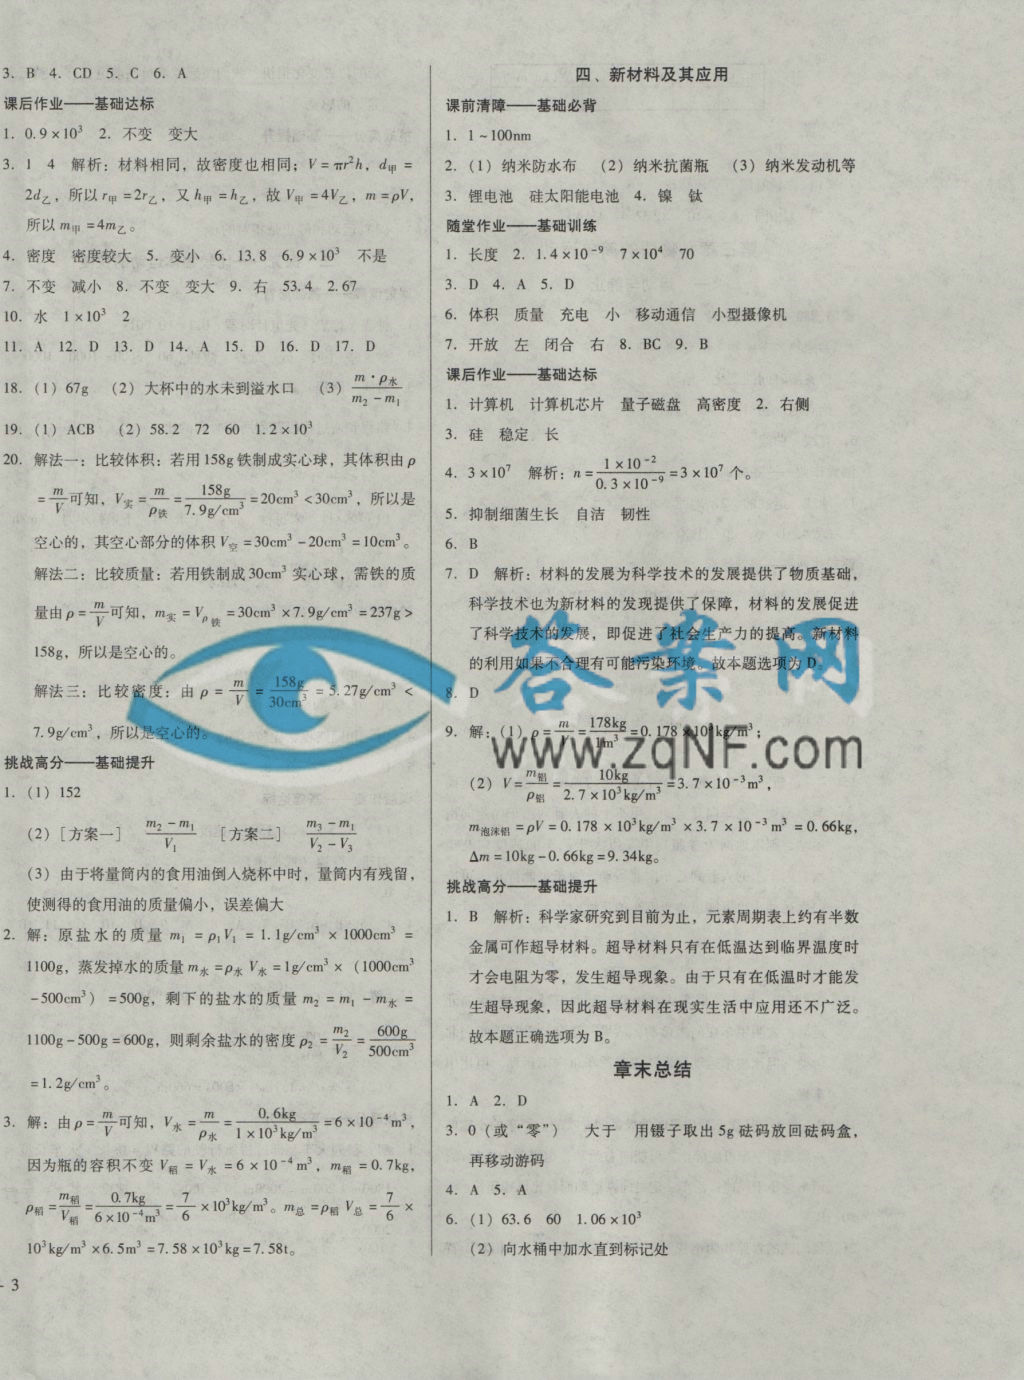 3. B 4. CD 5. C 6. A
课后作业——基础达标
1. 0.9×10³ 2. 不变 变大
3. 1 4 解析：材料相同，故密度也相同；V=πr²h，d甲=
2d乙，所以r甲=2r乙，又h甲=h乙，故V甲=4V乙，m=ρV，
所以m甲=4m乙。
4. 密度 密度较大 5. 变小 6. 13.8 6.9×10³ 不是
7. 不变 减小 8. 不变 变大 9. 右 53.4 2.67
10. 水 1×10³ 2
11. A 12. D 13. D 14. A 15. D 16. D 17. D
18. (1) 67g (2) 大杯中的水未到溢水口 (3) m·ρ水/(m₂-m₁)
19. (1) ACB (2) 58.2 72 60 1.2×10³
20. 解法一：比较体积：若用158g铁制成实心球，其体积由ρ
=m/V可知，V实=m/ρ铁=158g/7.9g/cm³=20cm³<30cm³，所以是
空心的，其空心部分的体积V空=30cm³-20cm³=10cm³。
解法二：比较质量：若用铁制成30cm³实心球，需铁的质
量由ρ=m/V可知，m实=Vρ铁=30cm³×7.9g/cm³=237g>
158g，所以是空心的。
解法三：比较密度：由ρ=m/V=158g/30cm³=5.27g/cm³<
7.9g/cm³，所以是空心的。
挑战高分——基础提升
1. (1) 152
(2) [方案一] (m₂-m₁)/V₁ [方案二] (m₃-m₁)/(V₂-V₃)
(3) 由于将量筒内的食用油倒入烧杯中时，量筒内有残留，
使测得的食用油的质量偏小，误差偏大
2. 解：原盐水的质量m₁=ρ₁V₁=1.1g/cm³×1000cm³=
1100g，蒸发掉水的质量m水=ρ水V水=1g/cm³×(1000cm³
-500cm³)=500g，剩下的盐水的质量m₂=m₁-m水=
1100g-500g=600g，则剩余盐水的密度ρ₂=m₂/V₂=600g/500cm³
=1.2g/cm³。
3. 解：由ρ=m/V可知，V水=m/ρ水=0.6kg/1×10³kg/m³=6×10⁻⁴m³，
因为瓶的容积不变V稻=V水=6×10⁻⁴m³，m稻=0.7kg，
ρ稻=m稻/V稻=0.7kg/6×10⁻⁴m³=7/6×10³kg/m³。m总=ρ稻V总=7/6×
10³kg/m³×6.5m³=7.58×10³kg=7.58t。
- 3
四、新材料及其应用
课前清障——基础必背
1. 1~100nm
2. (1) 纳米防水布 (2) 纳米抗菌瓶 (3) 纳米发动机等
3. 锂电池 硅太阳能电池 4. 镍 钛
随堂作业——基础训练
1. 长度 2. 1.4×10⁻⁹ 7×10⁴ 70
3. D 4. A 5. D
6. 体积 质量 充电 小 移动通信 小型摄像机
7. 开放 左 闭合 右 8. BC 9. B
课后作业——基础达标
1. 计算机 计算机芯片 量子磁盘 高密度 2. 右侧
3. 硅 稳定 长
4. 3×10⁷ 解析：n=1×10⁻²/0.3×10⁻⁹=3×10⁷个。
5. 抑制细菌生长 自洁 韧性
6. B
7. D 解析：材料的发展为科学技术的发展提供了物质基础，
科学技术也为新材料的发现提供了保障，材料的发展促进
了科学技术的发展，即促进了社会生产力的提高。新材料
的利用如果不合理有可能污染环境。故本题选项为D。
8. D
9. 解：(1) ρ=m/V=178kg/1m³=0.178×10³kg/m³；
(2) V=m铝/ρ铝=10kg/2.7×10³kg/m³=3.7×10⁻³m³，
m泡沫铝=ρV=0.178×10³kg/m³×3.7×10⁻³m³=0.66kg，
Δm=10kg-0.66kg=9.34kg。
挑战高分——基础提升
1. B 解析：科学家研究到目前为止，元素周期表上约有半数
金属可作超导材料。超导材料只有在低温达到临界温度时
才会电阻为零，发生超导现象。由于只有在低温时才能发
生超导现象，因此超导材料在现实生活中应用还不广泛。
故本题正确选项为B。
章末总结
1. A 2. D
3. 0（或“零”） 大于 用镊子取出5g砝码放回砝码盒，
再移动游码
4. A 5. A
6. (1) 63.6 60 1.06×10³
(2) 向水桶中加水直到标记处
答案网
www.zqNF.com